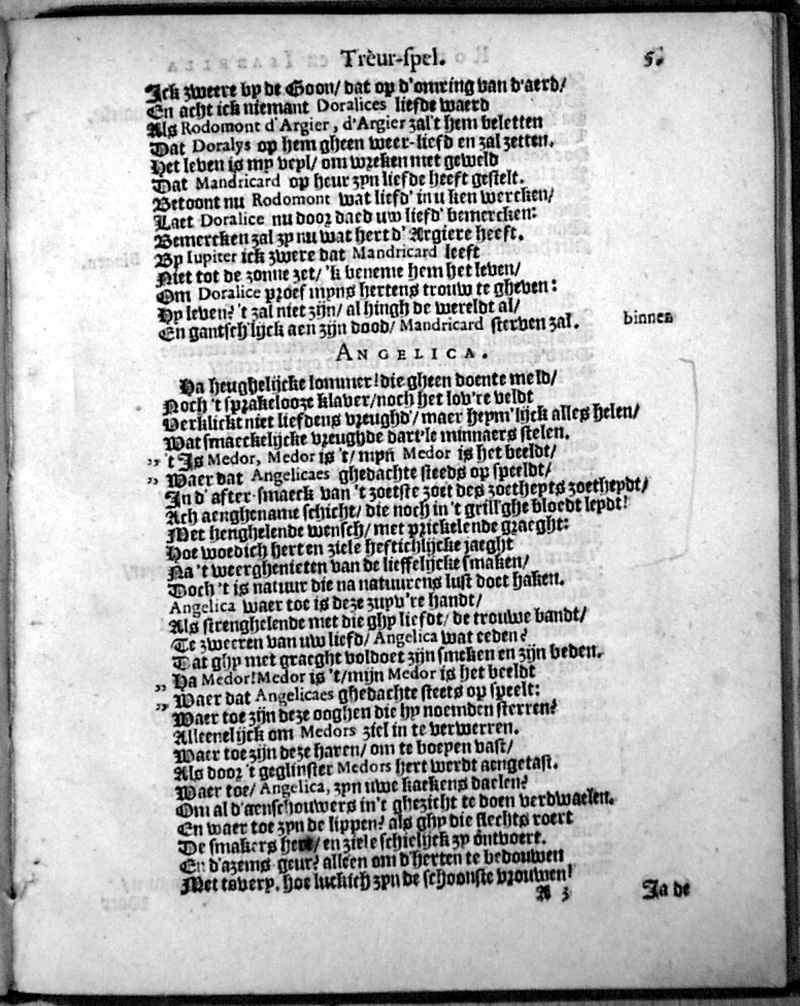 Trèur-spel. 5.
Ick zweere by de Goon/ dat op d'omring van d'aerd/
En acht ick niemant Doralices liefde waerd
Als Rodomont d'Argier, d'Argier zal't hem beletten
Dat Doralys op hem gheen weer-liefd en zal zetten.
Het leven is my veyl/ om wreken met geweld
Dat Mandricard op heur zyn liefde heeft gestelt.
Betoont nu Rodomont wat liefd' in u ken wercken/
Laet Doralice nu door daed uw liefd' bemercken:
Bemercken zal zy nu wat hert d'Argiere heeft.
By Iupiter ick zwere dat Mandricard leeft
Niet tot de zonne zet/ 'k beneme hem het leven/
Om Doralice proef myns hertens trouw te gheven:
Hy leven? 't zal niet zijn/ al hingh de wereldt al/
En gantsch'lijck aen zijn dood/ Mandricard sterven zal. binnen
ANGELICA.
Ha heughelijcke lommer! die gheen doente meld/
Noch 't sprakelooze klaver/ noch het lov're veldt
Verklickt niet liefdens vreughd'/ maer heym'lijck alles helen/
Wat smaeckelijcke vreughde dart'le minnaers stelen.
„ 't Is Medor, Medor is 't/ myn Medor is het beeldt/
„ Waer dat Angelicaes ghedachte steeds op speeldt/
In d'after-smaeck van 't zoetste zoet des zoetheyts zoetheydt/
Ach aenghename schicht/ die noch in 't grill'ghe bloedt leydt!
Met henghelende wensch/ met prickelende graeght:
Hoe woedich hert en ziele heftichlijcke jaeght
Na 't weerghenieten van de lieffelijcke smaken/
Doch 't is natuur die na natuurens lust doet haken.
Angelica waer toe is deze zuyv're handt/
Als strenghelende met die ghy liefdt/ de trouwe bandt/
Te zweeren van uw liefd/ Angelica wat eeden?
Dat ghy met graeght voldoet zijn smeken en zijn beden.
„ Ha Medor! Medor is 't/ mijn Medor is het beeldt
„ Waer dat Angelicaes ghedachte steets op speelt:
Waer toe zijn deze ooghen die hy noemden sterren?
Alleenelijck om Medors ziel in te verwerren.
Waer toe zijn deze haren/ om te boeyen vast/
Als door 't geglinster Medors hert werdt aengetast.
Waer toe/ Angelica, zyn uwe kaekens daelen?
Om al d'aenschouwers in 't ghezicht te doen verdwaelen.
En waer toe zyn de lippen? als ghy die slechts roert
De smakers hert/ en ziele schielijck zy ontvoert.
En d'azems geur? alleen om d'herten te bedouwen
Met tovery. hoe luckich zyn de schoonste vrouwen!
A 3 Ja de